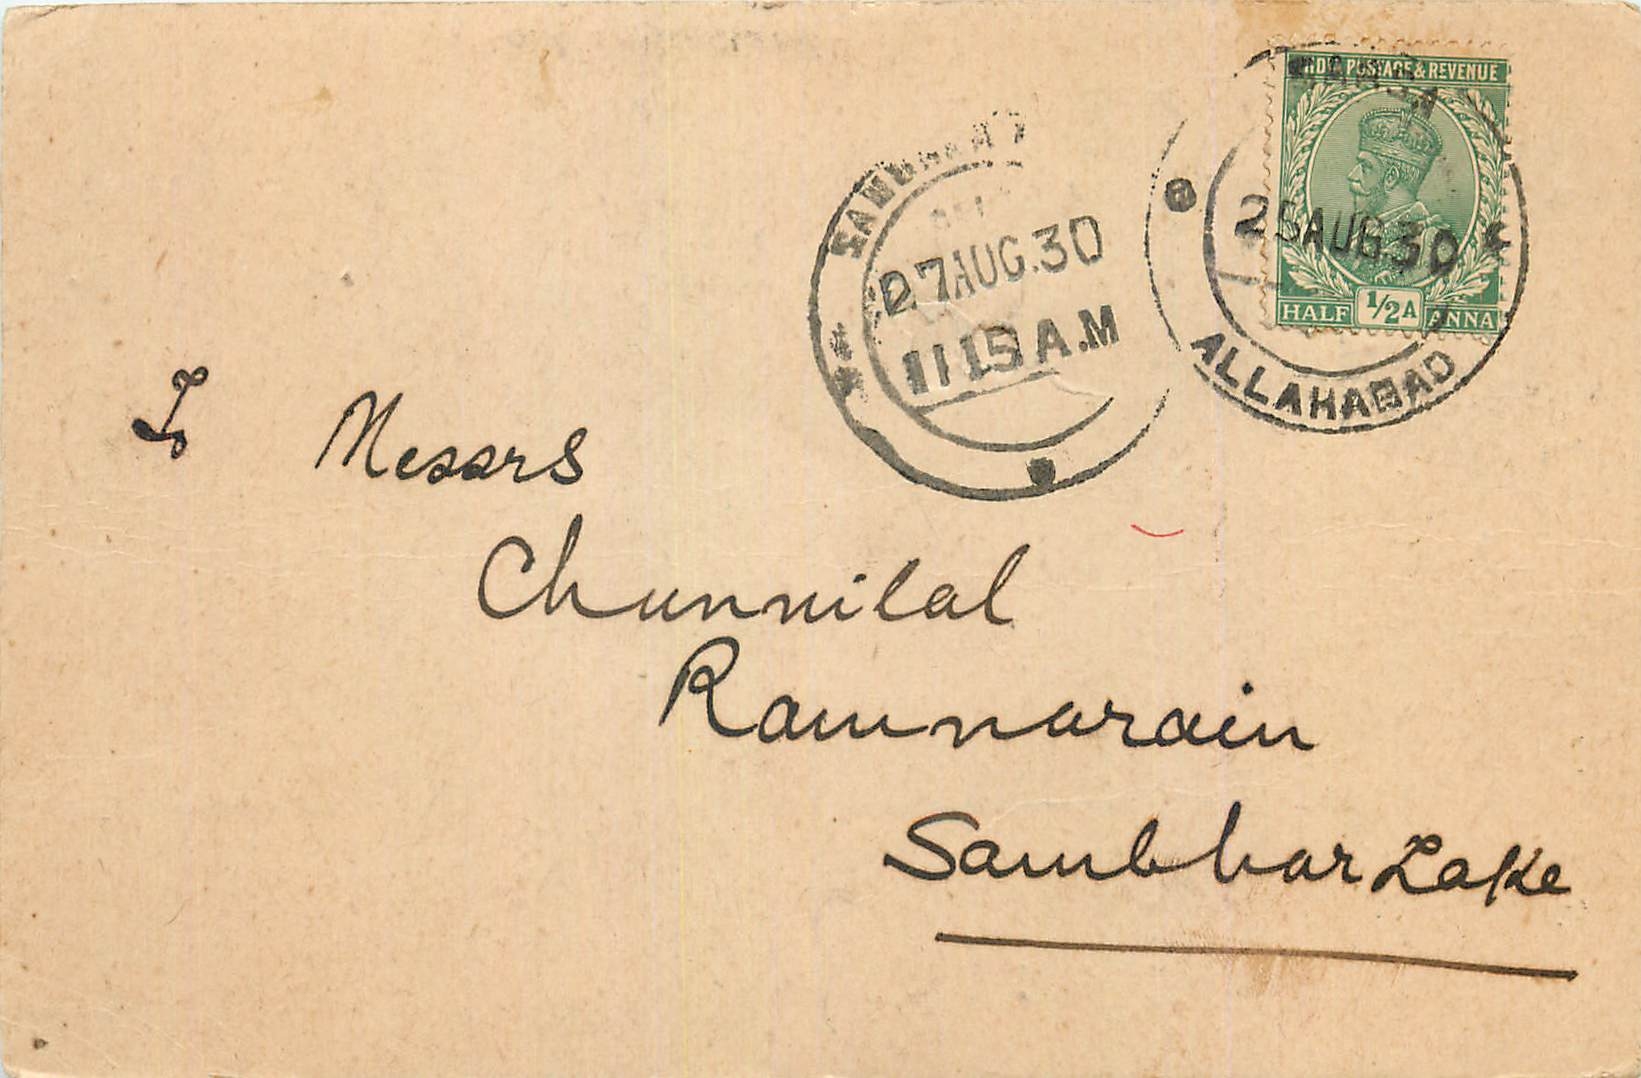 INDIA POSTAGE & REVENUE
25 AUG. 30
HALF 1/2 A ANNA
ALLAHABAD
SAMBHAR
27 AUG. 30
11 15 A.M
To Messrs
Chunnilal
Ramnarain
Sambhar Lake